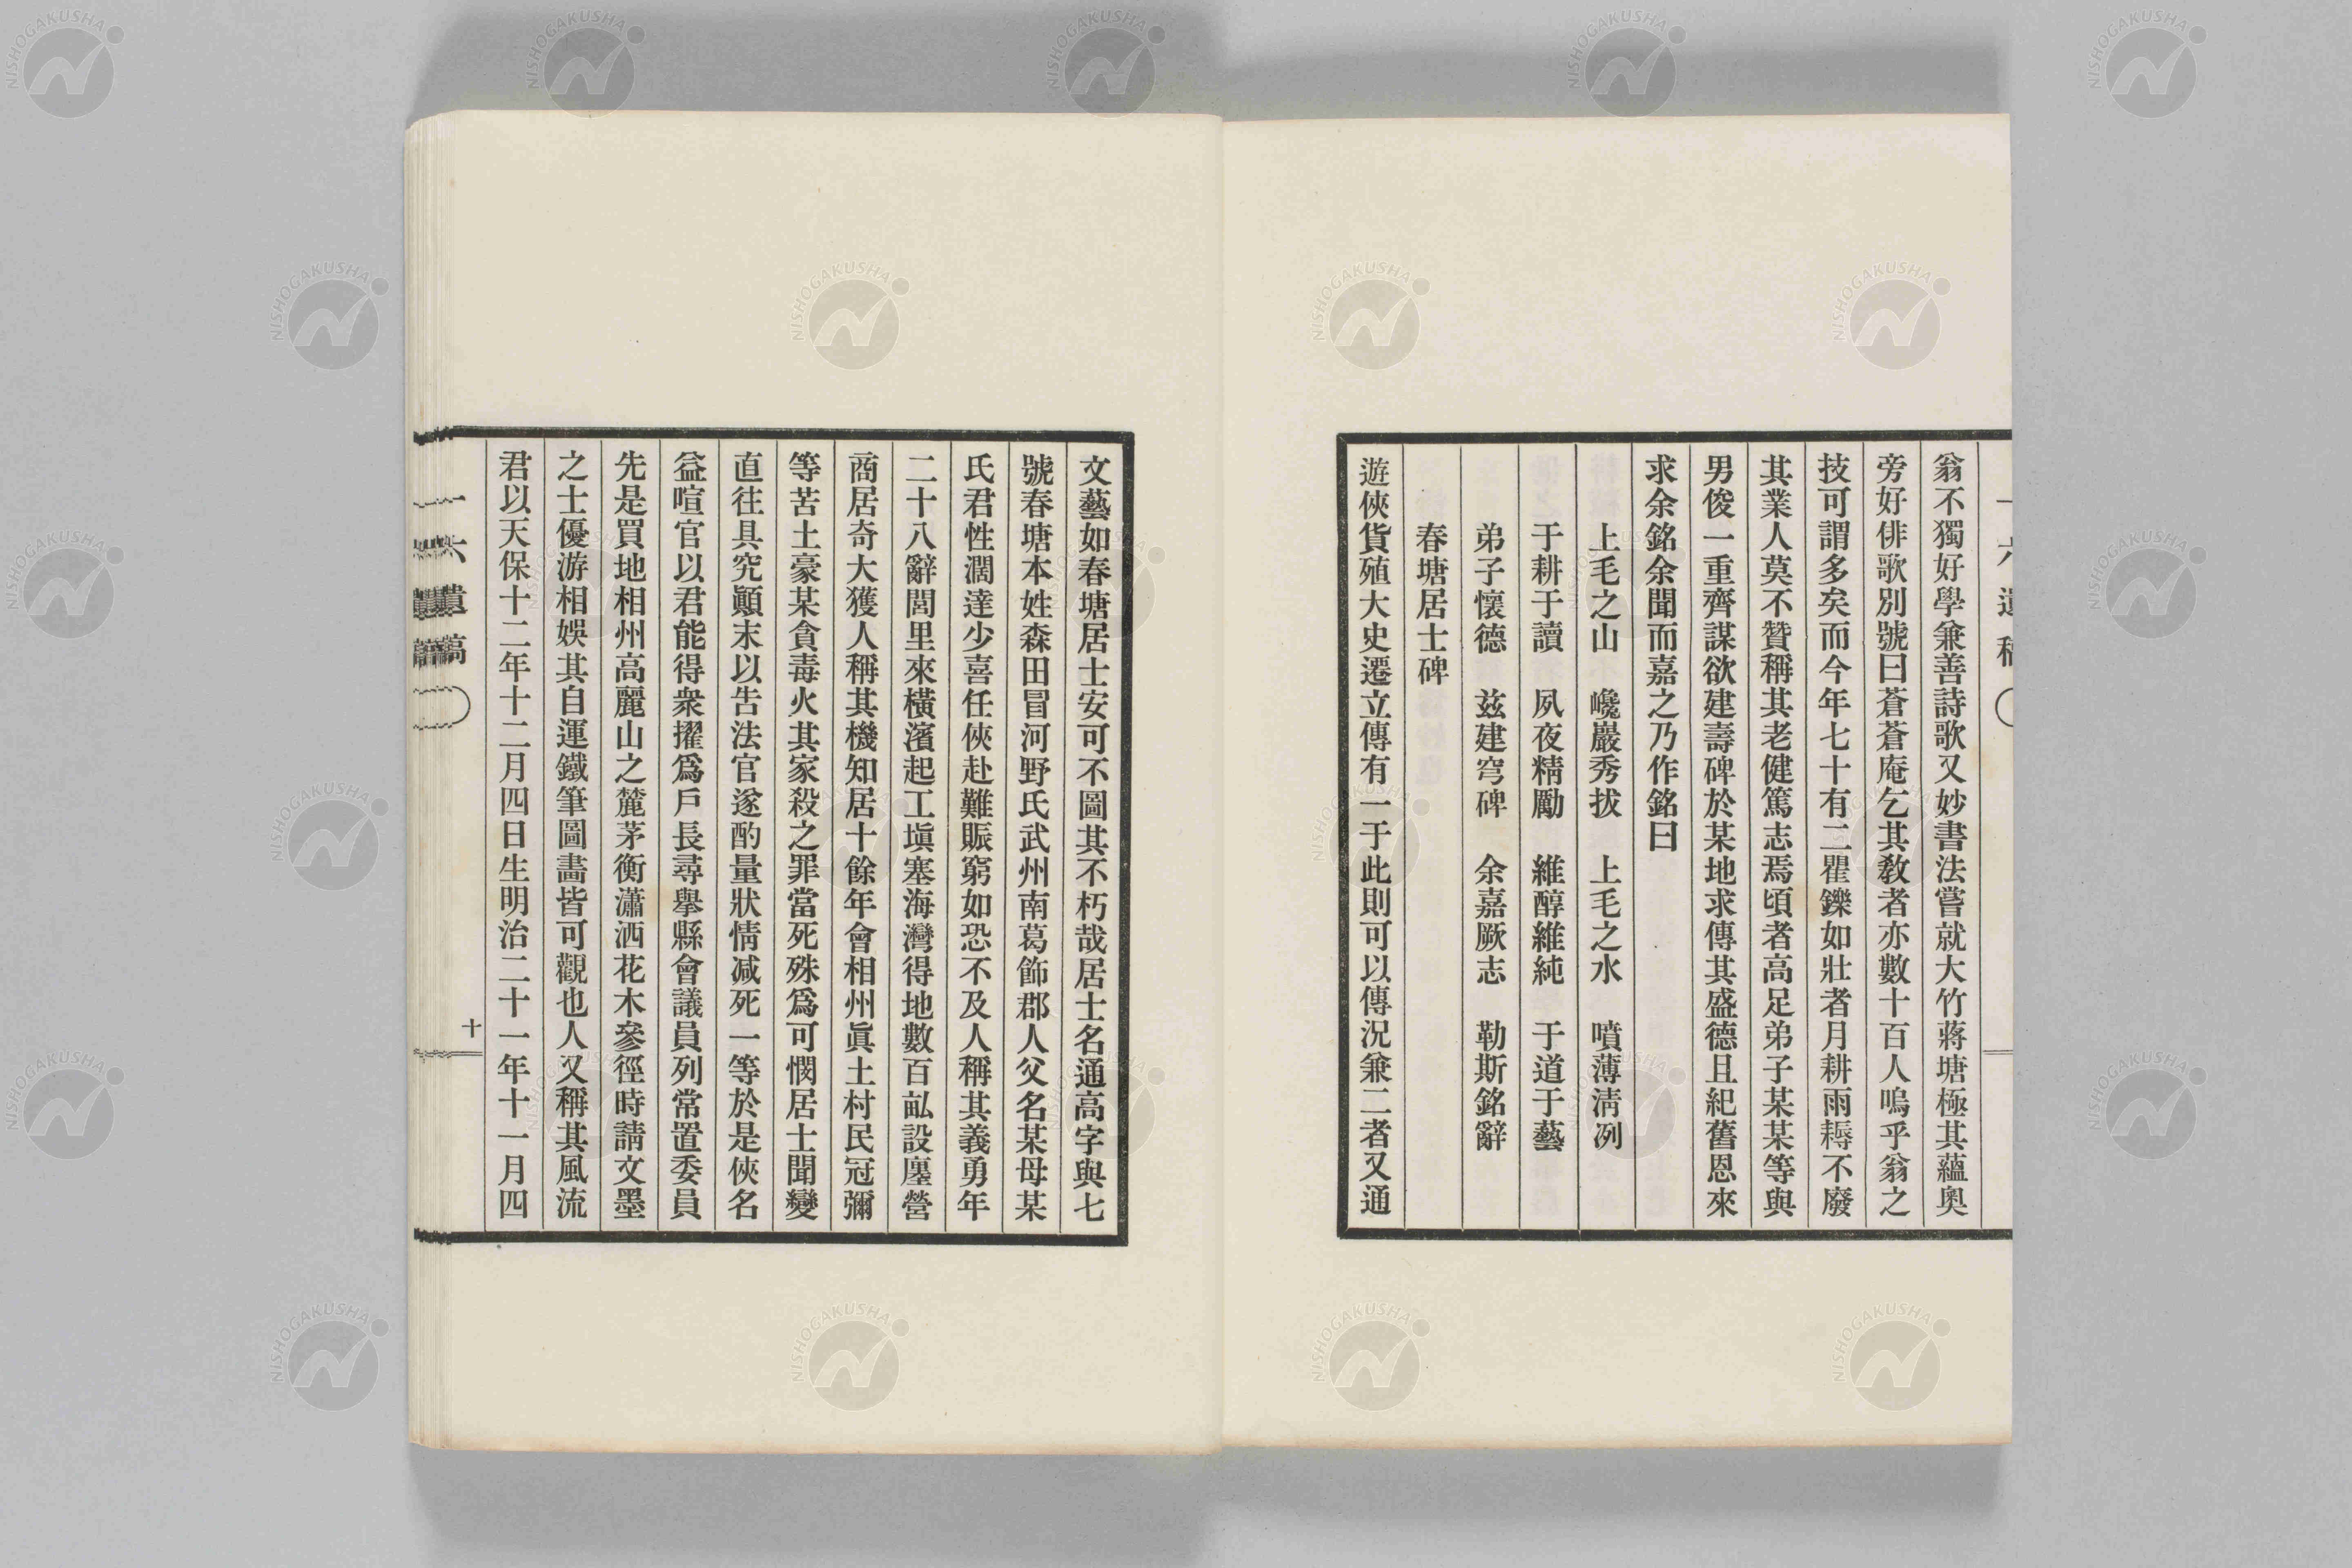 一六遺稿
翁不獨好學兼善詩歌又妙書法嘗就大竹蔣塘極其蘊奧
旁好俳歌別號曰蒼蒼庵乞其敎者亦數十百人嗚乎翁之
技可謂多矣而今年七十有二矍鑠如壯者月耕雨耨不廢
其業人莫不贊稱其老健篤志焉頃者高足弟子某某等與
男俊一重齊謀欲建壽碑於某地求傳其盛德且紀舊恩來
求余銘余聞而嘉之乃作銘曰
上毛之山　巉巖秀拔　上毛之水　噴薄淸冽
于耕于讀　夙夜精勵　維醇維純　于道于藝
弟子懷德　兹建穹碑　余嘉厥志　勒斯銘辭
春塘居士碑
遊俠貨殖大史遷立傳有一于此則可以傳況兼二者又通
文藝如春塘居士安可不圖其不朽哉居士名通高字與七
號春塘本姓森田冒河野氏武州南葛飾郡人父名某母某
氏君性濶達少喜任俠赴難賑窮如恐不及人稱其義勇年
二十八辭閭里來橫濱起工塡塞海灣得地數百畝設廛營
商居奇大獲人稱其機知居十餘年會相州眞土村民冠彌
等苦土豪某貪毒火其家殺之罪當死殊爲可憫居士聞變
直往具究顚末以吿法官遂酌量狀情減死一等於是俠名
益喧官以君能得衆擢爲戶長尋擧縣會議員列常置委員
先是買地相州高麗山之麓茅衡瀟洒花木參徑時請文墨
之士優游相娛其自運鐵筆圖畵皆可觀也人又稱其風流
君以天保十二年十二月四日生明治二十一年十一月四
一六遺稿
十
NISHOGAKUSHA